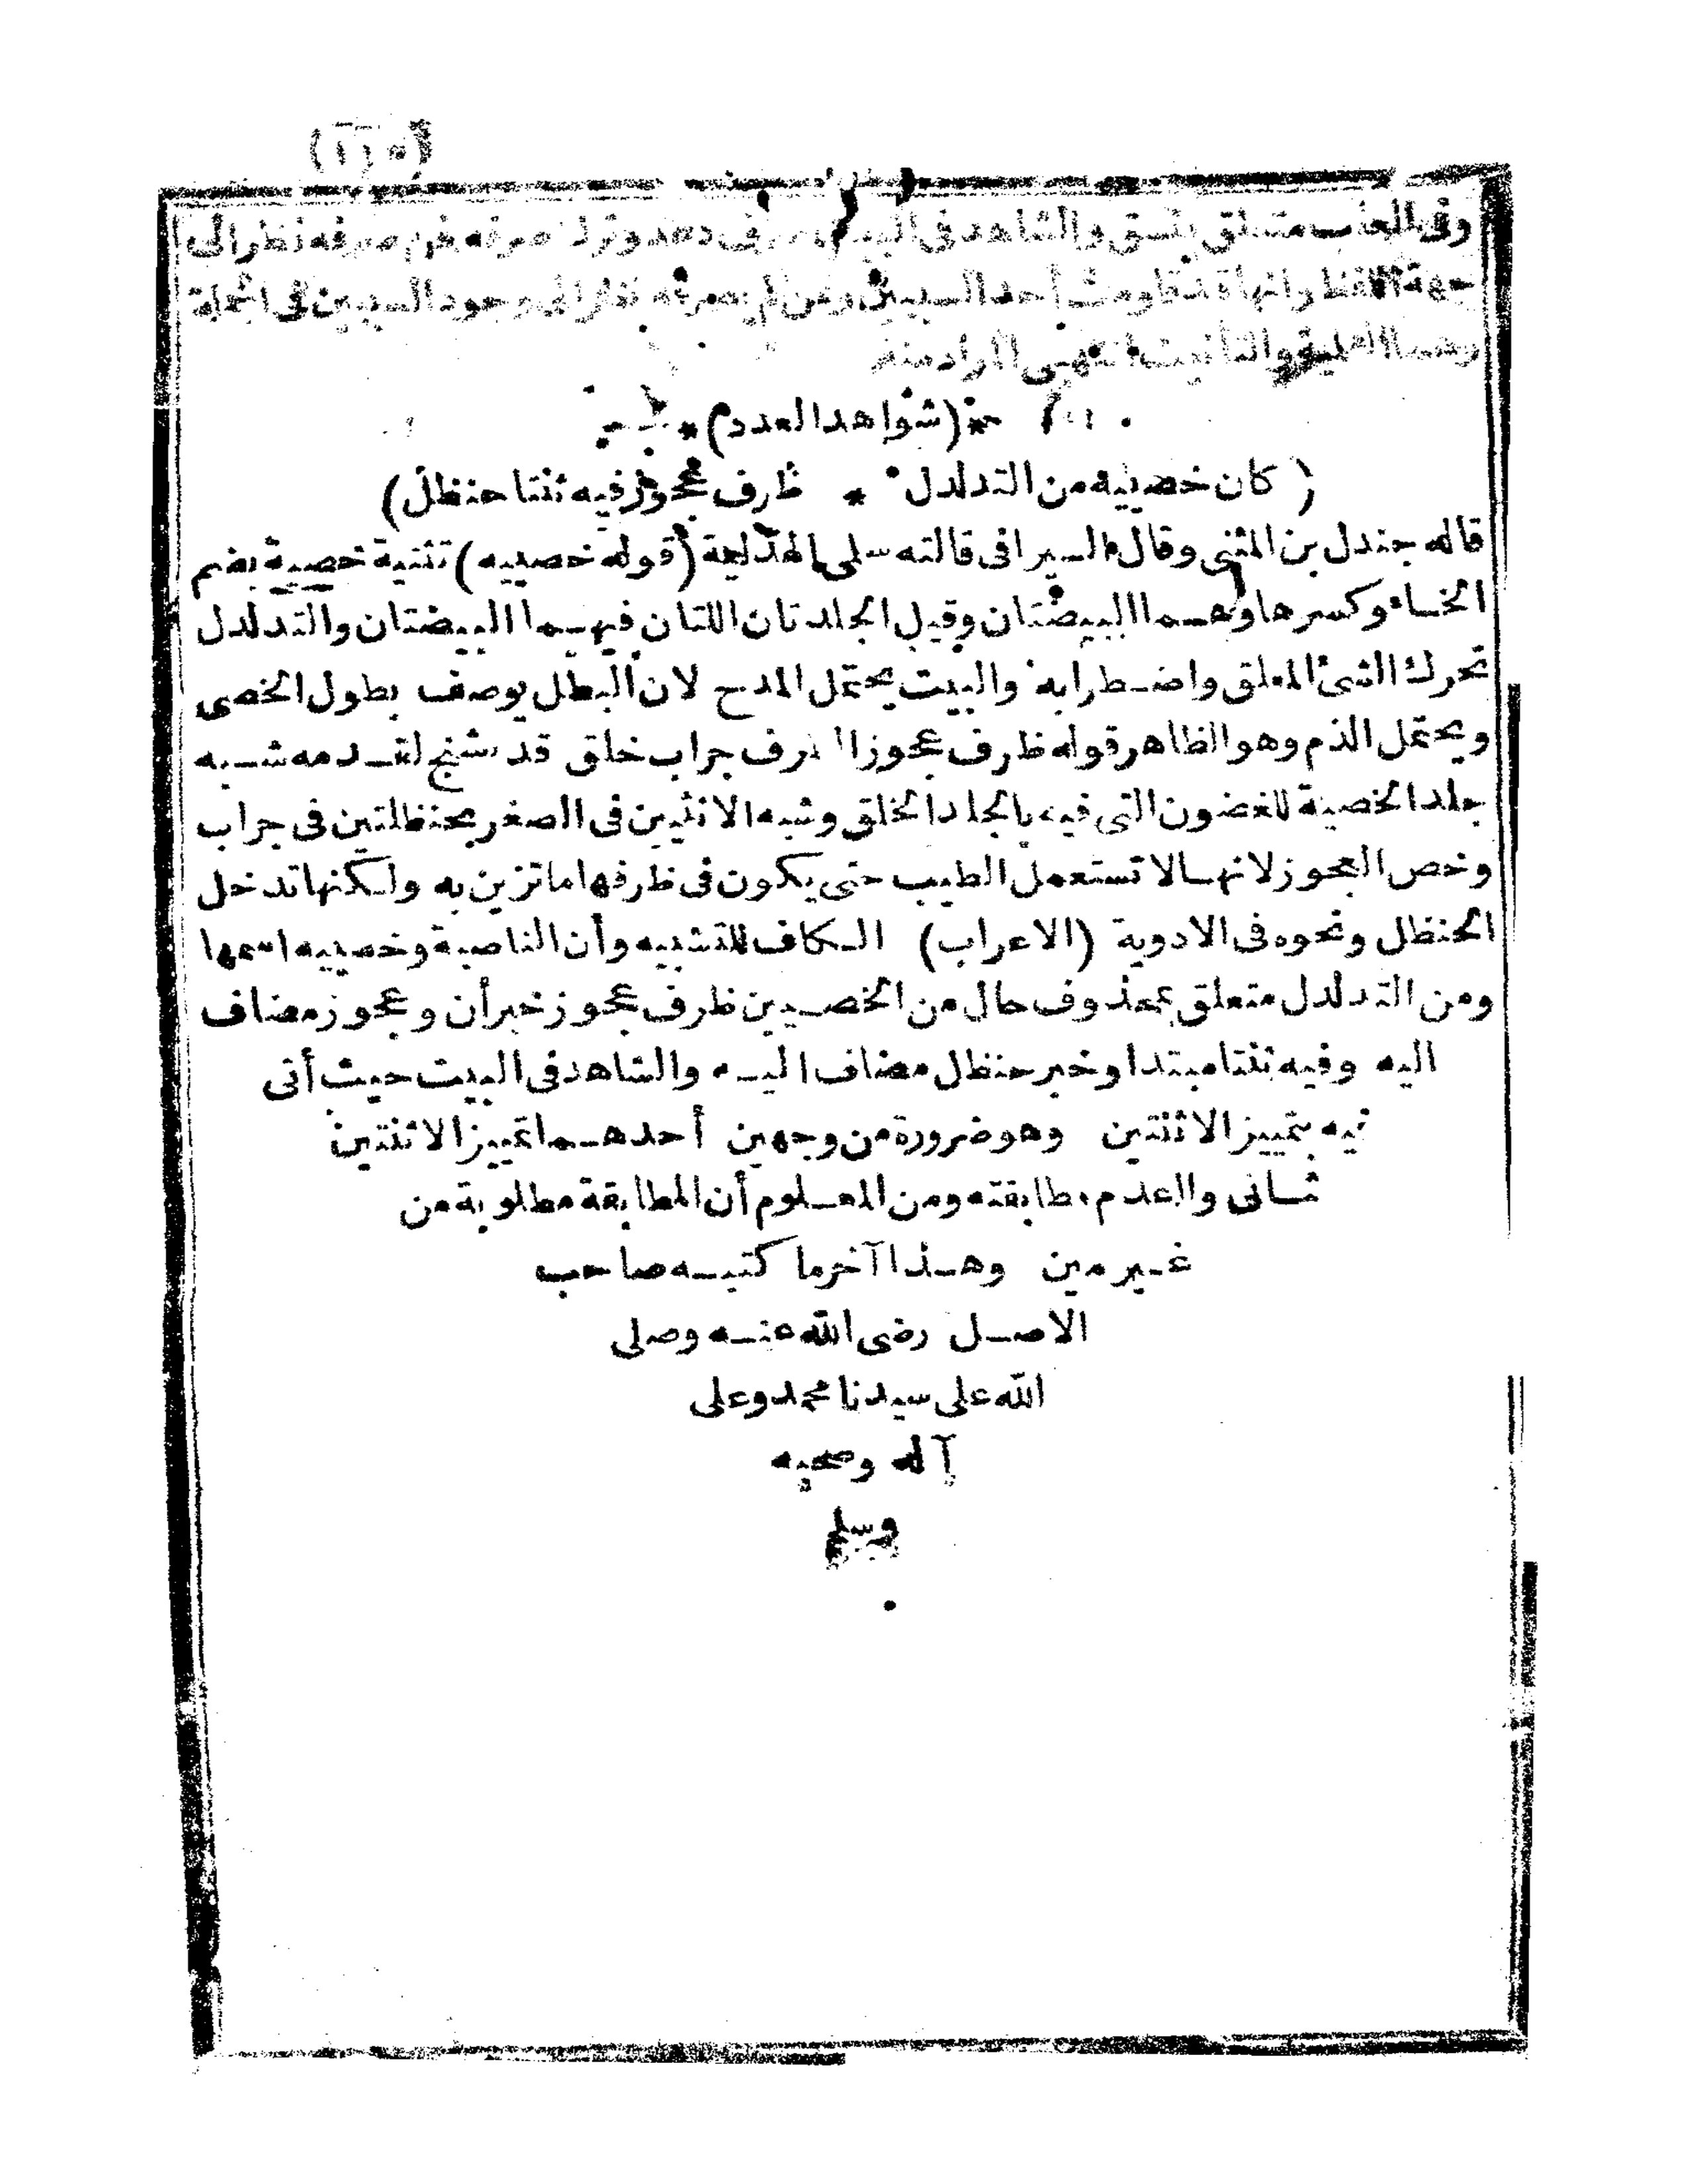 وفى العلب متعلق بتسق والشاهد فى البيت فى دعد وترك صرفه فمن صرفه نظر الى
جهة اللفظ وانها قد قاومت أحد السببين ومن لم يصرفه نظر الى وجود السببين فى الجملة
وهما العلمية والتأنيث انتهى المراد منه
(شواهد العدد)
(كان خصييه من التدلدل * ظرف عجوز فيه ثنتا حنظل)
قاله جندل بن المثنى وقال السيرافى قالته سلمى الهذلية (قوله خصييه) تثنية خصية بضم
الخاء وكسرها وهما البيضتان وقيل الجلدتان اللتان فيهما البيضتان والتدلدل
تحرك الشئ المعلق واضطرابه والبيت يحتمل المدح لان البطل يوصف بطول الخصى
ويحتمل الذم وهو الظاهر قوله ظرف عجوز الظرف جراب خلق قد تشنج لقدمه شبه
جلد الخصية للغضون التى فيه بالجلد الخلق وشبه الانثيين فى الصغر بحنظلتين فى جراب
وخص العجوز لانها لا تستعمل الطيب حتى يكون فى ظرفها ما تزين به ولكنها تدخل
الحنظل ونحوه فى الادوية (الاعراب) الكاف للتشبيه وأن الناصبة وخصييه اسمها
ومن التدلدل متعلق بمحذوف حال من الخصيين ظرف عجوز خبر أن وعجوز مضاف
اليه وفيه ثنتا مبتدا وخبر حنظل مضاف اليه والشاهد فى البيت حيث أتى
فيه بتمييز الاثنتين وهو ضرورة من وجهين أحدهما تمييز الاثنتين
ثانى والعدم مطابقته ومن المعلوم أن المطابقة مطلوبة من
غير مين وهذا آخر ما كتبه صاحب
الاصل رضى الله عنه وصلى
الله على سيدنا محمد وعلى
آله وصحبه
وسلم